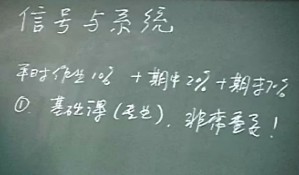 信号与系统
平时作业10% + 期中20% + 期末70%
① 基础课(考生), 非常重要!